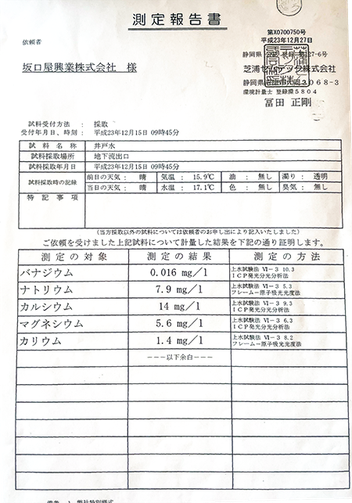 測定報告書
第X0700750号
平成23年12月27日
依頼者
坂口屋興業株式会社 様
静岡県
芝浦セムテック株式会社
静岡県
3068-3
環境計量士 登録第5804
冨田 正剛
試料受付方法 : 採取
受付年月日、時刻 : 平成23年12月15日 09時45分
試料名称 井戸水
試料採取場所 地下流出口
試料採取年月日 平成23年12月15日 09時45分
試料採取時の記録 前日の天気: 晴 気温: 15.9℃ 雨: 無し 濁り: 透明
当日の天気: 晴 水温: 17.1℃ 色: 無し 臭気: 無し
特記事項
(当方採取以外の試料については依頼者のお申し出により記入いたしました)
ご依頼を受けました上記試料について計量した結果を下記の通り証明します。
測定の対象 測定の結果 測定の方法
バナジウム 0.016 mg/l 上水試験法 VI-3 10.3
ICP発光分光分析法
ナトリウム 7.9 mg/l 上水試験法 VI-3 5.3
フレーム-原子吸光光度法
カルシウム 14 mg/l 上水試験法 VI-3 9.3
ICP発光分光分析法
マグネシウム 5.6 mg/l 上水試験法 VI-3 6.3
ICP発光分光分析法
カリウム 1.4 mg/l 上水試験法 VI-3 8.2
フレーム-原子吸光光度法
---以下余白---